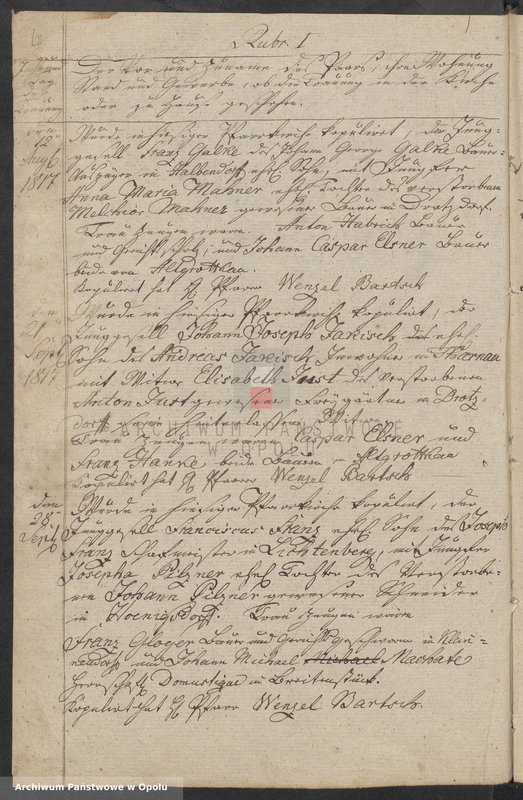 Rubr. I
Der Vor und Zuname des Paars, ihre Wohnung
Stand und Gewerbe, ob die Trauung in der Kirche
oder zu Hause geschehen.
Trauung
den
12
Aug
1817
Wurde in hiesiger Pfarrkirche kopulirt, der Jung-
gesell Franz Galke des Johann George Galke Bauer-
Auszüger in Halbendorf ehel. Sohn, mit Jungfer
Anna Maria Mahner ehel. Tochter des verstorbenen
Melchior Mahner gewesener Bauer in Drotzdorf.
Trau Zeugen waren. Anton Habrich Bauer
und Gericht Scholz, und Johann Caspar Elsner Bauer
beide von Altgrottkau.
Kopulirt hat H Pfarr Wenzel Bartsch
den
21
Sept
1817
Wurde in hiesiger Pfarrkirche kopulirt, der
Junggesell Johann Joseph Janisch des ehel.
Sohn des Andreas Janisch Inwohner in Tharnau
mit Witwe Elisabeth Just des Verstorbenen
Anton Just gewesener Freigärtner in Drotz-
dorf hinterlassene Witwe.
Trau Zeugen waren Caspar Elsner und
Franz Hanke beide Bauern in Altgrottkau
Kopulirt hat H Pfarr Wenzel Bartsch
den
28
Sept
Wurde in hiesiger Pfarrkirche kopulirt, der
Junggesell Franciscus Franz ehel. Sohn des Joseph
Franz Schafmeister in Lichtenberg, mit Jungfer
Josepha Pilzner ehel. Tochter des Verstorbe-
nen Johann Pilzner gewesener Schneider
in Hoenigsdorf. Trau Zeugen waren
Franz Gloger Bauer und Gerichtsgeschworner in
und Johann Michael Michael Machate
Herrschaftl. in
Kopulirt hat H Pfarr Wenzel Bartsch.
ARCHIWUM PAŃSTWOWE
W OPOLU
Archiwum Państwowe w Opolu